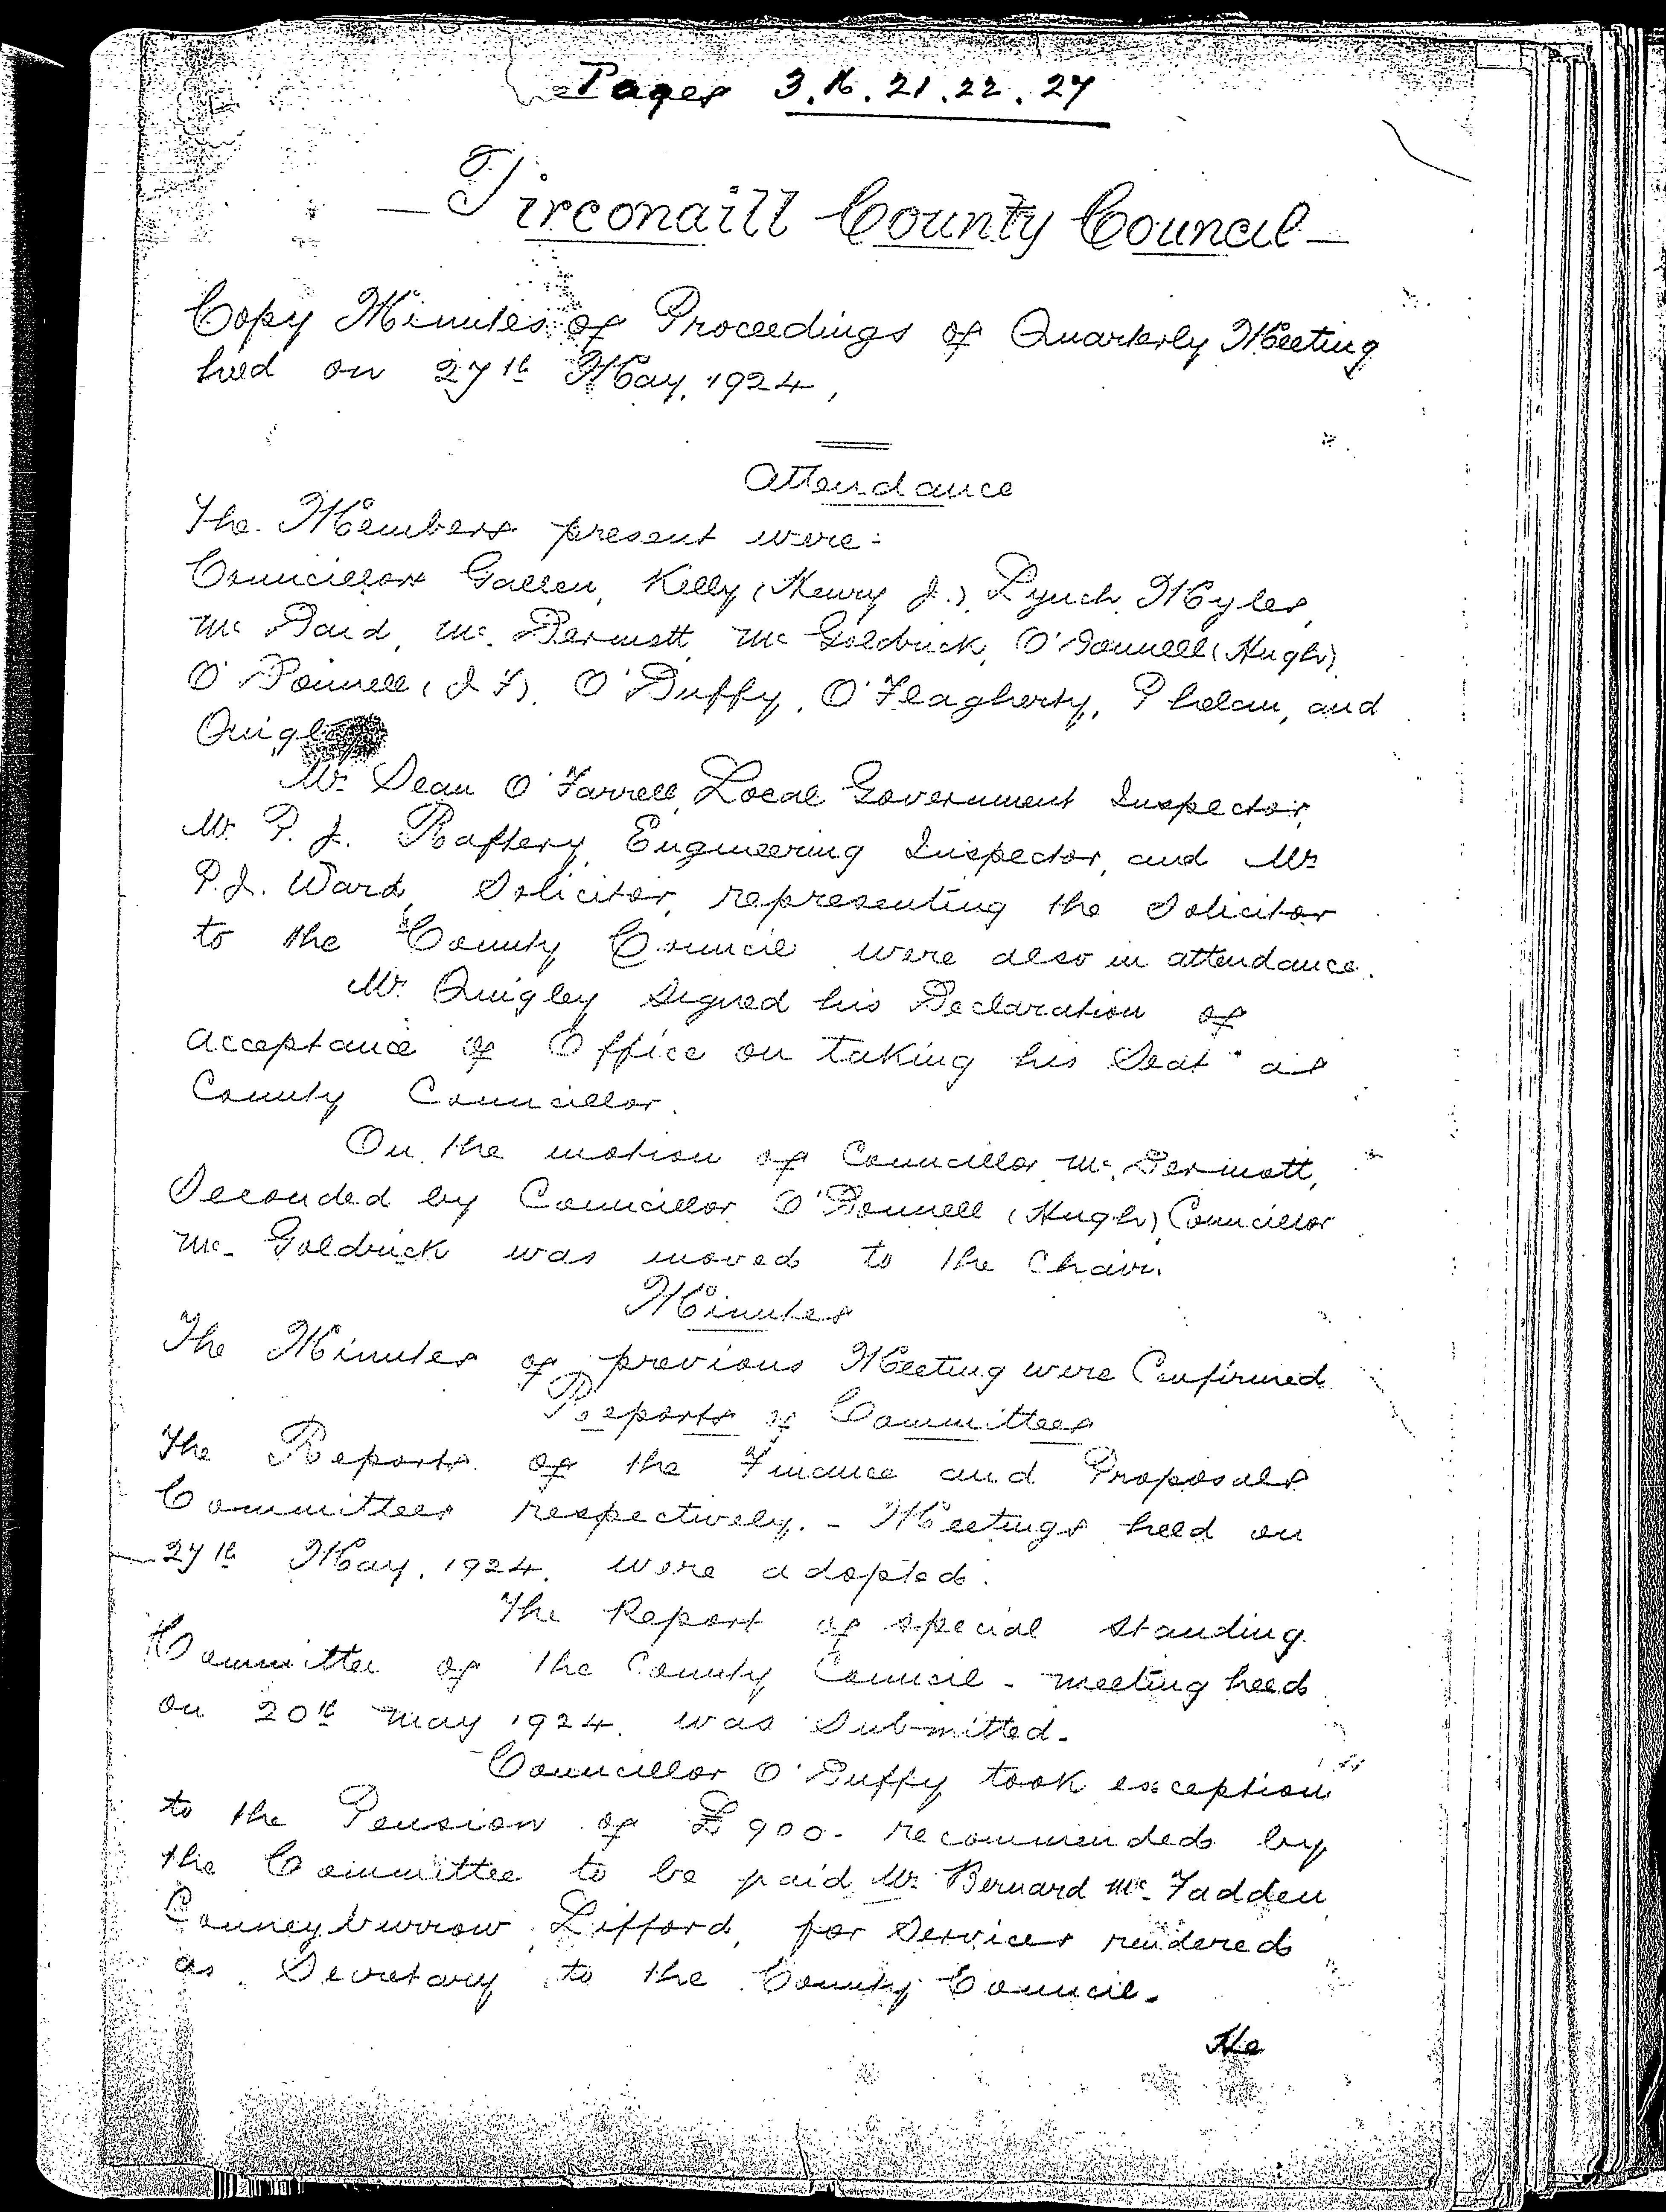 Pages 3.16.21.22.27
— Tirconaill County Council —
Copy Minutes of Proceedings of Quarterly Meeting
held on 27th May, 1924,
Attendance
The Members present were:
Councillors Gallen, Kelly (Henry J.), Lynch, Myles,
Mc Daid, Mc. Dermott, Mc Goldrick, O'Donnell (Hugh),
O'Donnell (J F), O'Duffy, O'Flagherty, Phelan, and
Quigley
Mr. Sean O'Farrell, Local Government Inspector,
Mr. P. J. Raftery, Engineering Inspector, and Mr
P.J. Ward, Solicitor, representing the Solicitor
to the County Council were also in attendance.
Mr. Quigley Signed his Declaration of
acceptance of Office on taking his Seat as
County Councillor.
On the motion of Councillor Mc. Dermott,
Seconded by Councillor O'Donnell (Hugh) Councillor
Mc. Goldrick was moved to the Chair.
Minutes
The Minutes of previous Meeting were Confirmed
Reports of Committees
The Reports of the Finance and Proposals
Committees respectively. - Meetings held on
27th May, 1924. were adopted.
The Report of special standing
Committee of the County Council - meeting held
on 20th May 1924. was Submitted.
Councillor O'Duffy took exception
to the Pension of £900. recommended by
the Committee to be paid Mr. Bernard Mc. Fadden,
Conneyburrow, Lifford, for Services rendered
as Secretary to the County Council.
He